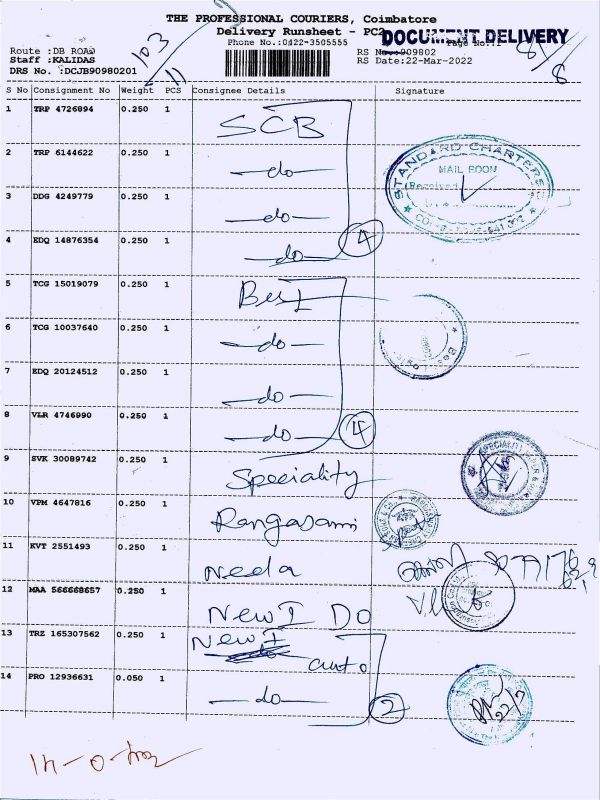 THE PROFESSIONAL COURIERS, Coimbatore
Delivery Runsheet - PC2
DOCUMENT DELIVERY
Phone No.:0422-3505555
Page No.:1
Route :DB ROAD
Staff :KALIDAS
DRS No. :DCJB90980201
RS No.:909802
RS Date:22-Mar-2022
103
11
8
S No Consignment No Weight PCS Consignee Details Signature
1 TRP 4726894 0.250 1 SCB
2 TRP 6144622 0.250 1 —do—
3 DDG 4249779 0.250 1 —do—
4 EDQ 14876354 0.250 1 —do— 4
STANDARD CHARTERED
MAIL ROOM
Received
5 TCG 15019079 0.250 1 Best
6 TCG 10037640 0.250 1 —do—
7 EDQ 20124512 0.250 1 —do—
8 VLR 4746990 0.250 1 —do— 4
9 SVK 30089742 0.250 1 Speciality
10 VPM 4647816 0.250 1 Rangasami
11 KVT 2551493 0.250 1 Needa
12 MAA 566668657 0.250 1 New I Do
13 TRZ 165307562 0.250 1 New I auto
14 PRO 12936631 0.050 1 —do— 2